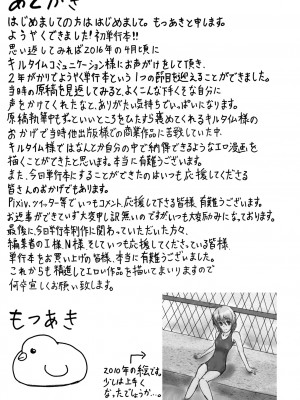 あとがき
はじめましての方ははじめまして。もつあきと申します。
ようやくできました!初単行本!!
思い返してみれば2016年の4月頃に
キルタイムコミュニケーション様にお声がけをして頂き、
2年がかりでようやく単行本という1つの節目を迎えることができました。
当時の原稿を見返してみると、よくこんな拙くすな自分に
声をかけてくれたなと、ありがたい気持ちでいっぱいになります。
原稿執筆中もずっといいところをひたすら褒めてくれるキルタイム様の
おかげで当時他出版様での商業作品に苦戦していた中、
キルタイム様ではなんとか自分の中で納得できるようなエロ漫画を
描くことができたと思います。本当に有難うございます。
また、今回単行本にすることができたのはいつも応援してくださる
皆さんのおかげでもあります。
Pixiv、ツイッター等でいつもコメント、応援して下さる皆様、有難うございます。
お返事ができていず大変申し訳無いですが、いつも大変励みになっております。
最後に、今回単行本制作に関わっていただいた方々、
編集者のI様、N様、そしていつも応援してくださっている皆様
単行本をお買い上げの皆様、本当に有難うございました。
これからも精進してエロい作品を描いてまいりますので
何卒宜しくお願い致します。
もつあき
2010年の絵です。
少しは上手く
なったでしょうか…。